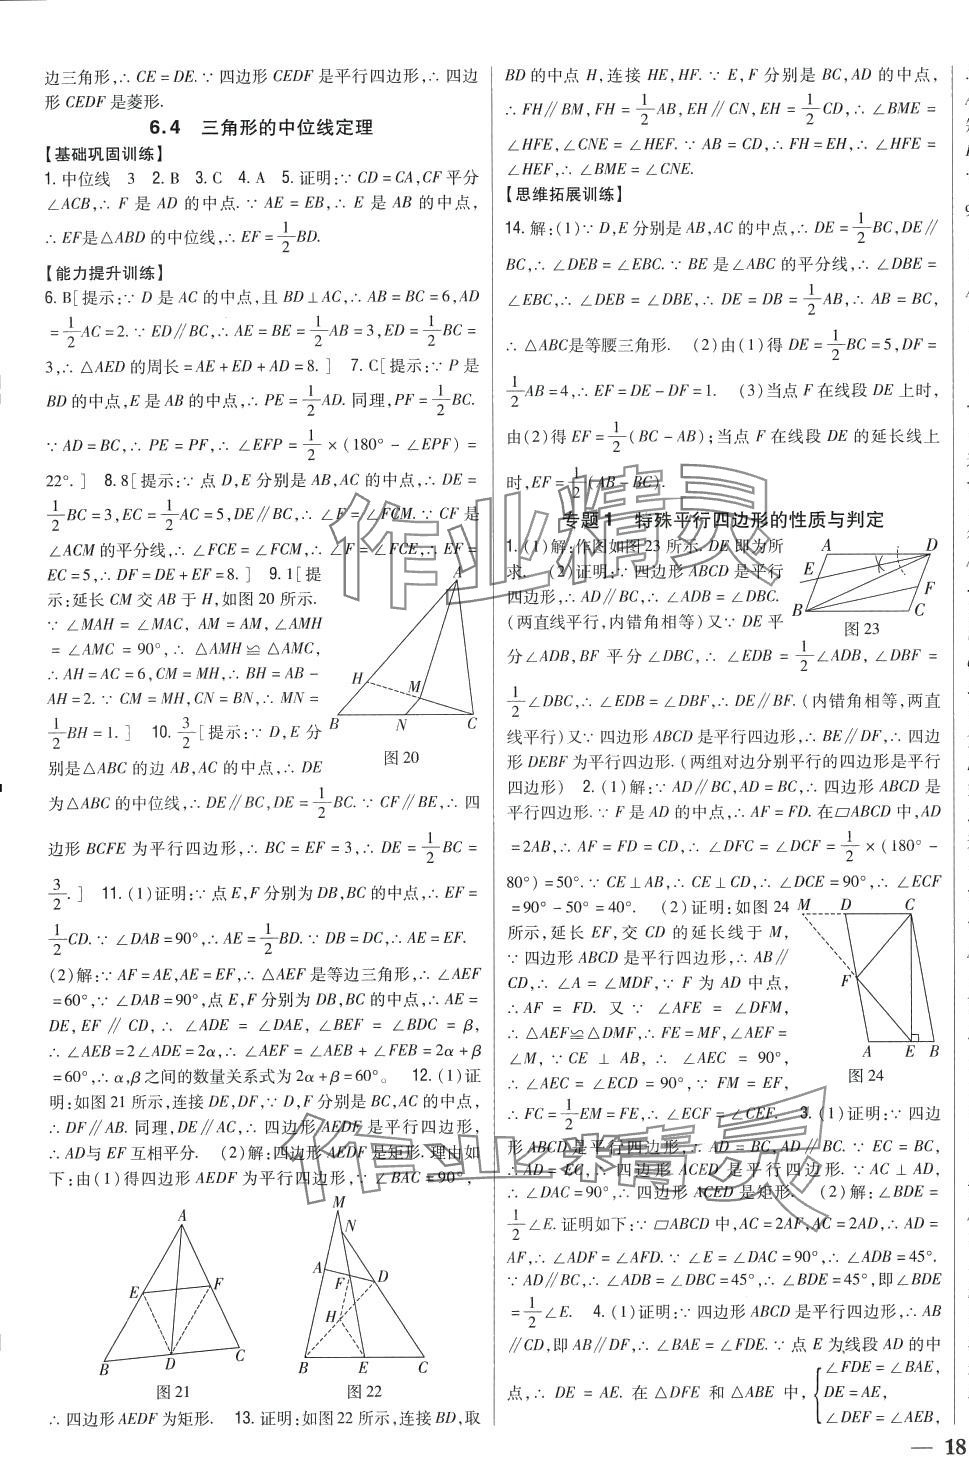 边三角形,∴ CE = DE. ∵ 四边形 CEDF 是平行四边形,∴ 四边
形 CEDF 是菱形.
6.4 三角形的中位线定理
【基础巩固训练】
1. 中位线 3 2. B 3. C 4. A 5. 证明:∵ CD = CA, CF 平分
∠ACB,∴ F 是 AD 的中点. ∵ AE = EB,∴ E 是 AB 的中点,
∴ EF是△ABD 的中位线,∴ EF = 1/2 BD.
【能力提升训练】
6. B[提示:∵ D 是 AC 的中点,且 BD⊥AC,∴ AB = BC = 6, AD
= 1/2 AC = 2. ∵ ED∥BC,∴ AE = BE = 1/2 AB = 3, ED = 1/2 BC =
3,∴ △AED 的周长 = AE + ED + AD = 8. ] 7. C[提示:∵ P 是
BD 的中点,E 是 AB 的中点,∴ PE = 1/2 AD. 同理,PF = 1/2 BC.
∵ AD = BC,∴ PE = PF,∴ ∠EFP = 1/2 × (180° − ∠EPF) =
22°. ] 8. 8[提示:∵ 点 D,E 分别是 AB,AC 的中点,∴ DE =
1/2 BC = 3, EC = 1/2 AC = 5, DE∥BC,∴ ∠F = ∠FCM. ∵ CF 是
∠ACM 的平分线,∴ ∠FCE = ∠FCM,∴ ∠F = ∠FCE,∴ EF =
EC = 5,∴ DF = DE + EF = 8. ] 9. 1[提
示:延长 CM 交 AB 于 H,如图 20 所示.
∵ ∠MAH = ∠MAC, AM = AM, ∠AMH
= ∠AMC = 90°,∴ △AMH ≌ △AMC,
∴ AH = AC = 6, CM = MH,∴ BH = AB −
AH = 2. ∵ CM = MH, CN = BN,∴ MN =
1/2 BH = 1. ] 10. 3/2 [提示:∵ D,E 分
别是△ABC 的边 AB,AC 的中点,∴ DE
A
H
M
B
N
C
图 20
为△ABC 的中位线,∴ DE∥BC, DE = 1/2 BC. ∵ CF∥BE,∴ 四
边形 BCFE 为平行四边形,∴ BC = EF = 3,∴ DE = 1/2 BC =
3/2. ] 11. (1)证明:∵ 点 E,F 分别为 DB,BC 的中点,∴ EF =
1/2 CD. ∵ ∠DAB = 90°,∴ AE = 1/2 BD. ∵ DB = DC,∴ AE = EF.
(2)解:∵ AF = AE, AE = EF,∴ △AEF 是等边三角形,∴ ∠AEF
= 60°,∵ ∠DAB = 90°,点 E,F 分别为 DB,BC 的中点,∴ AE =
DE, EF ∥ CD,∴ ∠ADE = ∠DAE, ∠BEF = ∠BDC = β,
∴ ∠AEB = 2∠ADE = 2α,∴ ∠AEF = ∠AEB + ∠FEB = 2α + β
= 60°,∴ α,β之间的数量关系式为 2α + β = 60°。 12. (1)证
明:如图 21 所示,连接 DE,DF,∵ D,F 分别是 BC,AC 的中点,
∴ DF∥AB. 同理,DE∥AC,∴ 四边形 AEDF 是平行四边形,
∴ AD与 EF 互相平分. (2)解:四边形 AEDF 是矩形. 理由如
下:由(1)得四边形 AEDF 为平行四边形,∵ ∠BAC = 90°,
A
E
F
B
D
C
图 21
M
N
A
F
D
H
B
E
C
图 22
∴ 四边形 AEDF 为矩形. 13. 证明:如图 22 所示,连接 BD,取
BD 的中点 H,连接 HE,HF. ∵ E,F 分别是 BC,AD 的中点,
∴ FH∥BM, FH = 1/2 AB, EH∥CN, EH = 1/2 CD,∴ ∠BME =
∠HFE, ∠CNE = ∠HEF. ∵ AB = CD,∴ FH = EH,∴ ∠HFE =
∠HEF,∴ ∠BME = ∠CNE.
【思维拓展训练】
14. 解:(1)∵ D,E 分别是 AB,AC 的中点,∴ DE = 1/2 BC, DE∥
BC,∴ ∠DEB = ∠EBC. ∵ BE 是∠ABC 的平分线,∴ ∠DBE =
∠EBC,∴ ∠DEB = ∠DBE,∴ DE = DB = 1/2 AB,∴ AB = BC,
∴ △ABC是等腰三角形. (2)由(1)得 DE = 1/2 BC = 5, DF =
1/2 AB = 4,∴ EF = DE − DF = 1. (3)当点 F 在线段 DE 上时,
由(2)得 EF = 1/2 (BC − AB);当点 F 在线段 DE 的延长线上
时,EF = 1/2 (AB − BC).
专题 1 特殊平行四边形的性质与判定
1. (1)解:作图如图 23 所示. DE 即为所
求. (2)证明:∵ 四边形 ABCD 是平行
四边形,∴ AD∥BC,∴ ∠ADB = ∠DBC.
(两直线平行,内错角相等)又∵ DE 平
A
D
E
F
B
C
图 23
分∠ADB, BF 平分∠DBC,∴ ∠EDB = 1/2 ∠ADB, ∠DBF =
1/2 ∠DBC,∴ ∠EDB = ∠DBF,∴ DE∥BF. (内错角相等,两直
线平行)又∵ 四边形 ABCD 是平行四边形,∴ BE∥DF,∴ 四边
形 DEBF 为平行四边形. (两组对边分别平行的四边形是平行
四边形) 2. (1)解:∵ AD∥BC, AD = BC,∴ 四边形 ABCD 是
平行四边形. ∵ F 是 AD 的中点,∴ AF = FD. 在▱ABCD 中,AD
= 2AB,∴ AF = FD = CD,∴ ∠DFC = ∠DCF = 1/2 × (180° −
80°) = 50°. ∵ CE⊥AB,∴ CE⊥CD,∴ ∠DCE = 90°,∴ ∠ECF
= 90° − 50° = 40°. (2)证明:如图 24
所示,延长 EF,交 CD 的延长线于 M,
∵ 四边形 ABCD 是平行四边形,∴ AB∥
CD,∴ ∠A = ∠MDF,∵ F 为 AD 中点,
∴ AF = FD. 又 ∵ ∠AFE = ∠DFM,
∴ △AEF≌△DMF,∴ FE = MF, ∠AEF =
∠M, ∵ CE ⊥ AB,∴ ∠AEC = 90°,
∴ ∠AEC = ∠ECD = 90°, ∵ FM = EF,
M
D
C
F
A
E
B
图 24
∴ FC = 1/2 EM = FE,∴ ∠ECF = ∠CEF. 3. (1)证明:∵ 四边
形 ABCD 是平行四边形,∴ AD = BC, AD∥BC. ∵ EC = BC,
∴ AD = EC,∴ 四边形 ACED 是平行四边形. ∵ AC ⊥ AD,
∴ ∠DAC = 90°,∴ 四边形 ACED 是矩形. (2)解:∠BDE =
1/2 ∠E. 证明如下:∵ ▱ABCD 中,AC = 2AF, AC = 2AD,∴ AD =
AF,∴ ∠ADF = ∠AFD. ∵ ∠E = ∠DAC = 90°,∴ ∠ADB = 45°.
∵ AD∥BC,∴ ∠ADB = ∠DBC = 45°,∴ ∠BDE = 45°,即∠BDE
= 1/2 ∠E. 4. (1)证明:∵ 四边形 ABCD 是平行四边形,∴ AB
∥CD,即 AB∥DF,∴ ∠BAE = ∠FDE. ∵ 点 E 为线段 AD 的中
点,∴ DE = AE. 在 △DFE 和 △ABE 中,
{∠FDE = ∠BAE,
DE = AE,
∠DEF = ∠AEB,
— 18
作业精灵
作业精灵